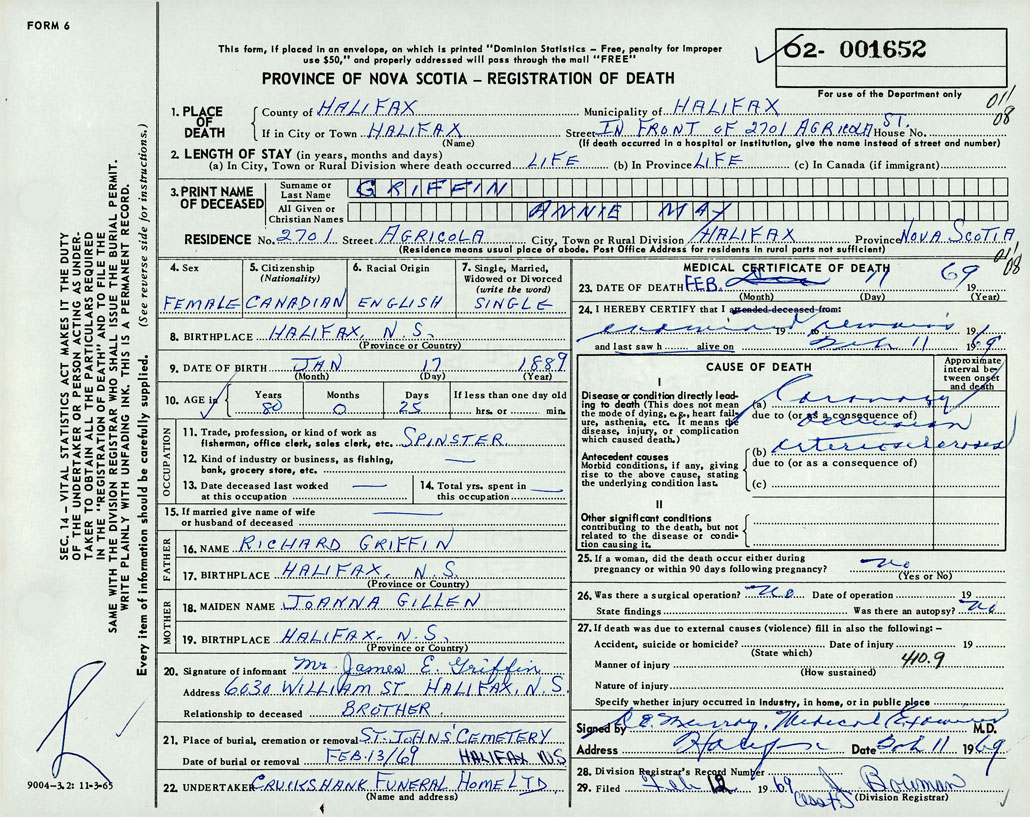 FORM 6
This form, if placed in an envelope, on which is printed "Dominion Statistics – Free, penalty for improper
use $50," and properly addressed will pass through the mail "FREE"
PROVINCE OF NOVA SCOTIA – REGISTRATION OF DEATH
02- 001652
For use of the Department only
011
08
1. PLACE OF DEATH
County of HALIFAX Municipality of HALIFAX
If in City or Town HALIFAX Street IN FRONT OF 2701 AGRICOLA ST. House No.
(Name) (If death occurred in a hospital or institution, give the name instead of street and number)
2. LENGTH OF STAY (in years, months and days)
(a) In City, Town or Rural Division where death occurred LIFE (b) In Province LIFE (c) In Canada (if immigrant)
3. PRINT NAME OF DECEASED
Surname or Last Name GRIFFIN
All Given or Christian Names ANNIE MAY
RESIDENCE No. 2701 Street AGRICOLA City, Town or Rural Division HALIFAX Province NOVA SCOTIA
(Residence means usual place of abode. Post Office Address for residents in rural parts not sufficient)
011
08
4. Sex FEMALE
5. Citizenship (Nationality) CANADIAN
6. Racial Origin ENGLISH
7. Single, Married, Widowed or Divorced (write the word) SINGLE
8. BIRTHPLACE HALIFAX, N.S.
(Province or Country)
9. DATE OF BIRTH JAN 17 1889
(Month) (Day) (Year)
10. AGE in Years Months Days If less than one day old
80 0 25 hrs. or min.
OCCUPATION
11. Trade, profession, or kind of work as
fisherman, office clerk, sales clerk, etc. SPINSTER
12. Kind of industry or business, as fishing,
bank, grocery store, etc. —
13. Date deceased last worked
at this occupation —
14. Total yrs. spent in
this occupation —
15. If married give name of wife
or husband of deceased —
FATHER
16. NAME RICHARD GRIFFIN
17. BIRTHPLACE HALIFAX, N.S.
(Province or Country)
MOTHER
18. MAIDEN NAME JOANNA GILLEN
19. BIRTHPLACE HALIFAX, N.S.
(Province or Country)
20. Signature of informant Mr. James E. Griffin
Address 6030 WILLIAM ST HALIFAX, N.S.
Relationship to deceased BROTHER.
21. Place of burial, cremation or removal ST. JOHNS' CEMETERY
Date of burial or removal FEB. 13/69 HALIFAX N.S
22. UNDERTAKER CRUIKSHANK FUNERAL HOME LTD.
(Name and address)
MEDICAL CERTIFICATE OF DEATH
23. DATE OF DEATH FEB. 11 69 19
(Month) (Day) (Year)
24. I HEREBY CERTIFY that I attended deceased from:
examined 19 to remains 19
and last saw h alive on Feb 11 1969
CAUSE OF DEATH
Approximate interval between onset and death
I
Disease or condition directly leading to death (This does not mean the mode of dying, e.g., heart failure, asthenia, etc. It means the disease, injury, or complication which caused death.)
(a) Coronary
due to (or as a consequence of)
occlusion
Antecedent causes
Morbid conditions, if any, giving rise to the above cause, stating the underlying condition last.
(b) arteriosclerosis
due to (or as a consequence of)
(c)
II
Other significant conditions
contributing to the death, but not related to the disease or condition causing it.
25. If a woman, did the death occur either during
pregnancy or within 90 days following pregnancy? No
(Yes or No)
26. Was there a surgical operation? No Date of operation 19
State findings Was there an autopsy? No
27. If death was due to external causes (violence) fill in also the following: –
Accident, suicide or homicide? Date of injury 19
(State which)
Manner of injury 410.9
(How sustained)
Nature of injury
Specify whether injury occurred in industry, in home, or in public place
Signed by R E Murray, Medical Examiner M.D.
Address Halifax Date Feb 11 1969
28. Division Registrar's Record Number
29. Filed Feb 12 1969 J. Bowman
(Division Registrar)
SEC. 14 – VITAL STATISTICS ACT MAKES IT THE DUTY
OF THE UNDERTAKER OR PERSON ACTING AS UNDER-
TAKER TO OBTAIN ALL THE PARTICULARS REQUIRED
IN THE "REGISTRATION OF DEATH" AND TO FILE THE
SAME WITH THE DIVISION REGISTRAR WHO SHALL ISSUE THE BURIAL PERMIT.
WRITE PLAINLY WITH UNFADING INK. THIS IS A PERMANENT RECORD.
Every item of information should be carefully supplied. (See reverse side for instructions.)
9004-3.2: 11-3-65